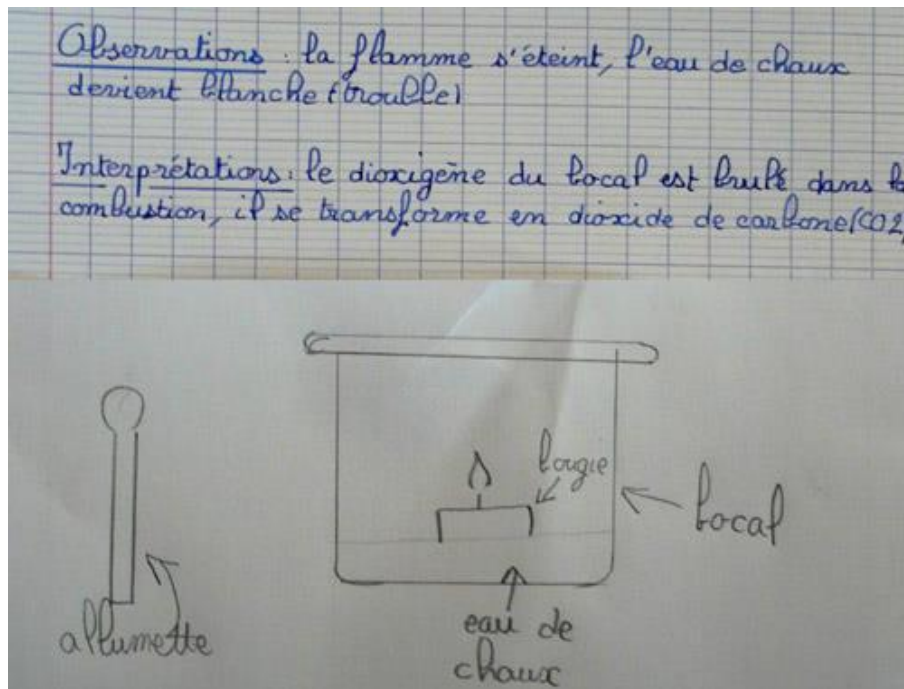 Observations : la flamme s'éteint, l'eau de chaux
devient blanche (trouble)
Interprétations : le dioxigène du bocal est brulé dans la
combustion, il se transforme en dioxide de carbone (CO2)
bougie
bocal
allumette
eau de
chaux